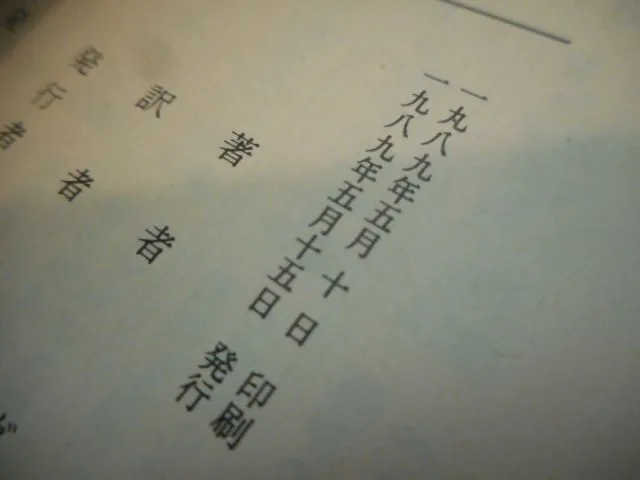 一九八九年五月十日 印刷
一九八九年五月十五日 発行
著者
訳者
発行者